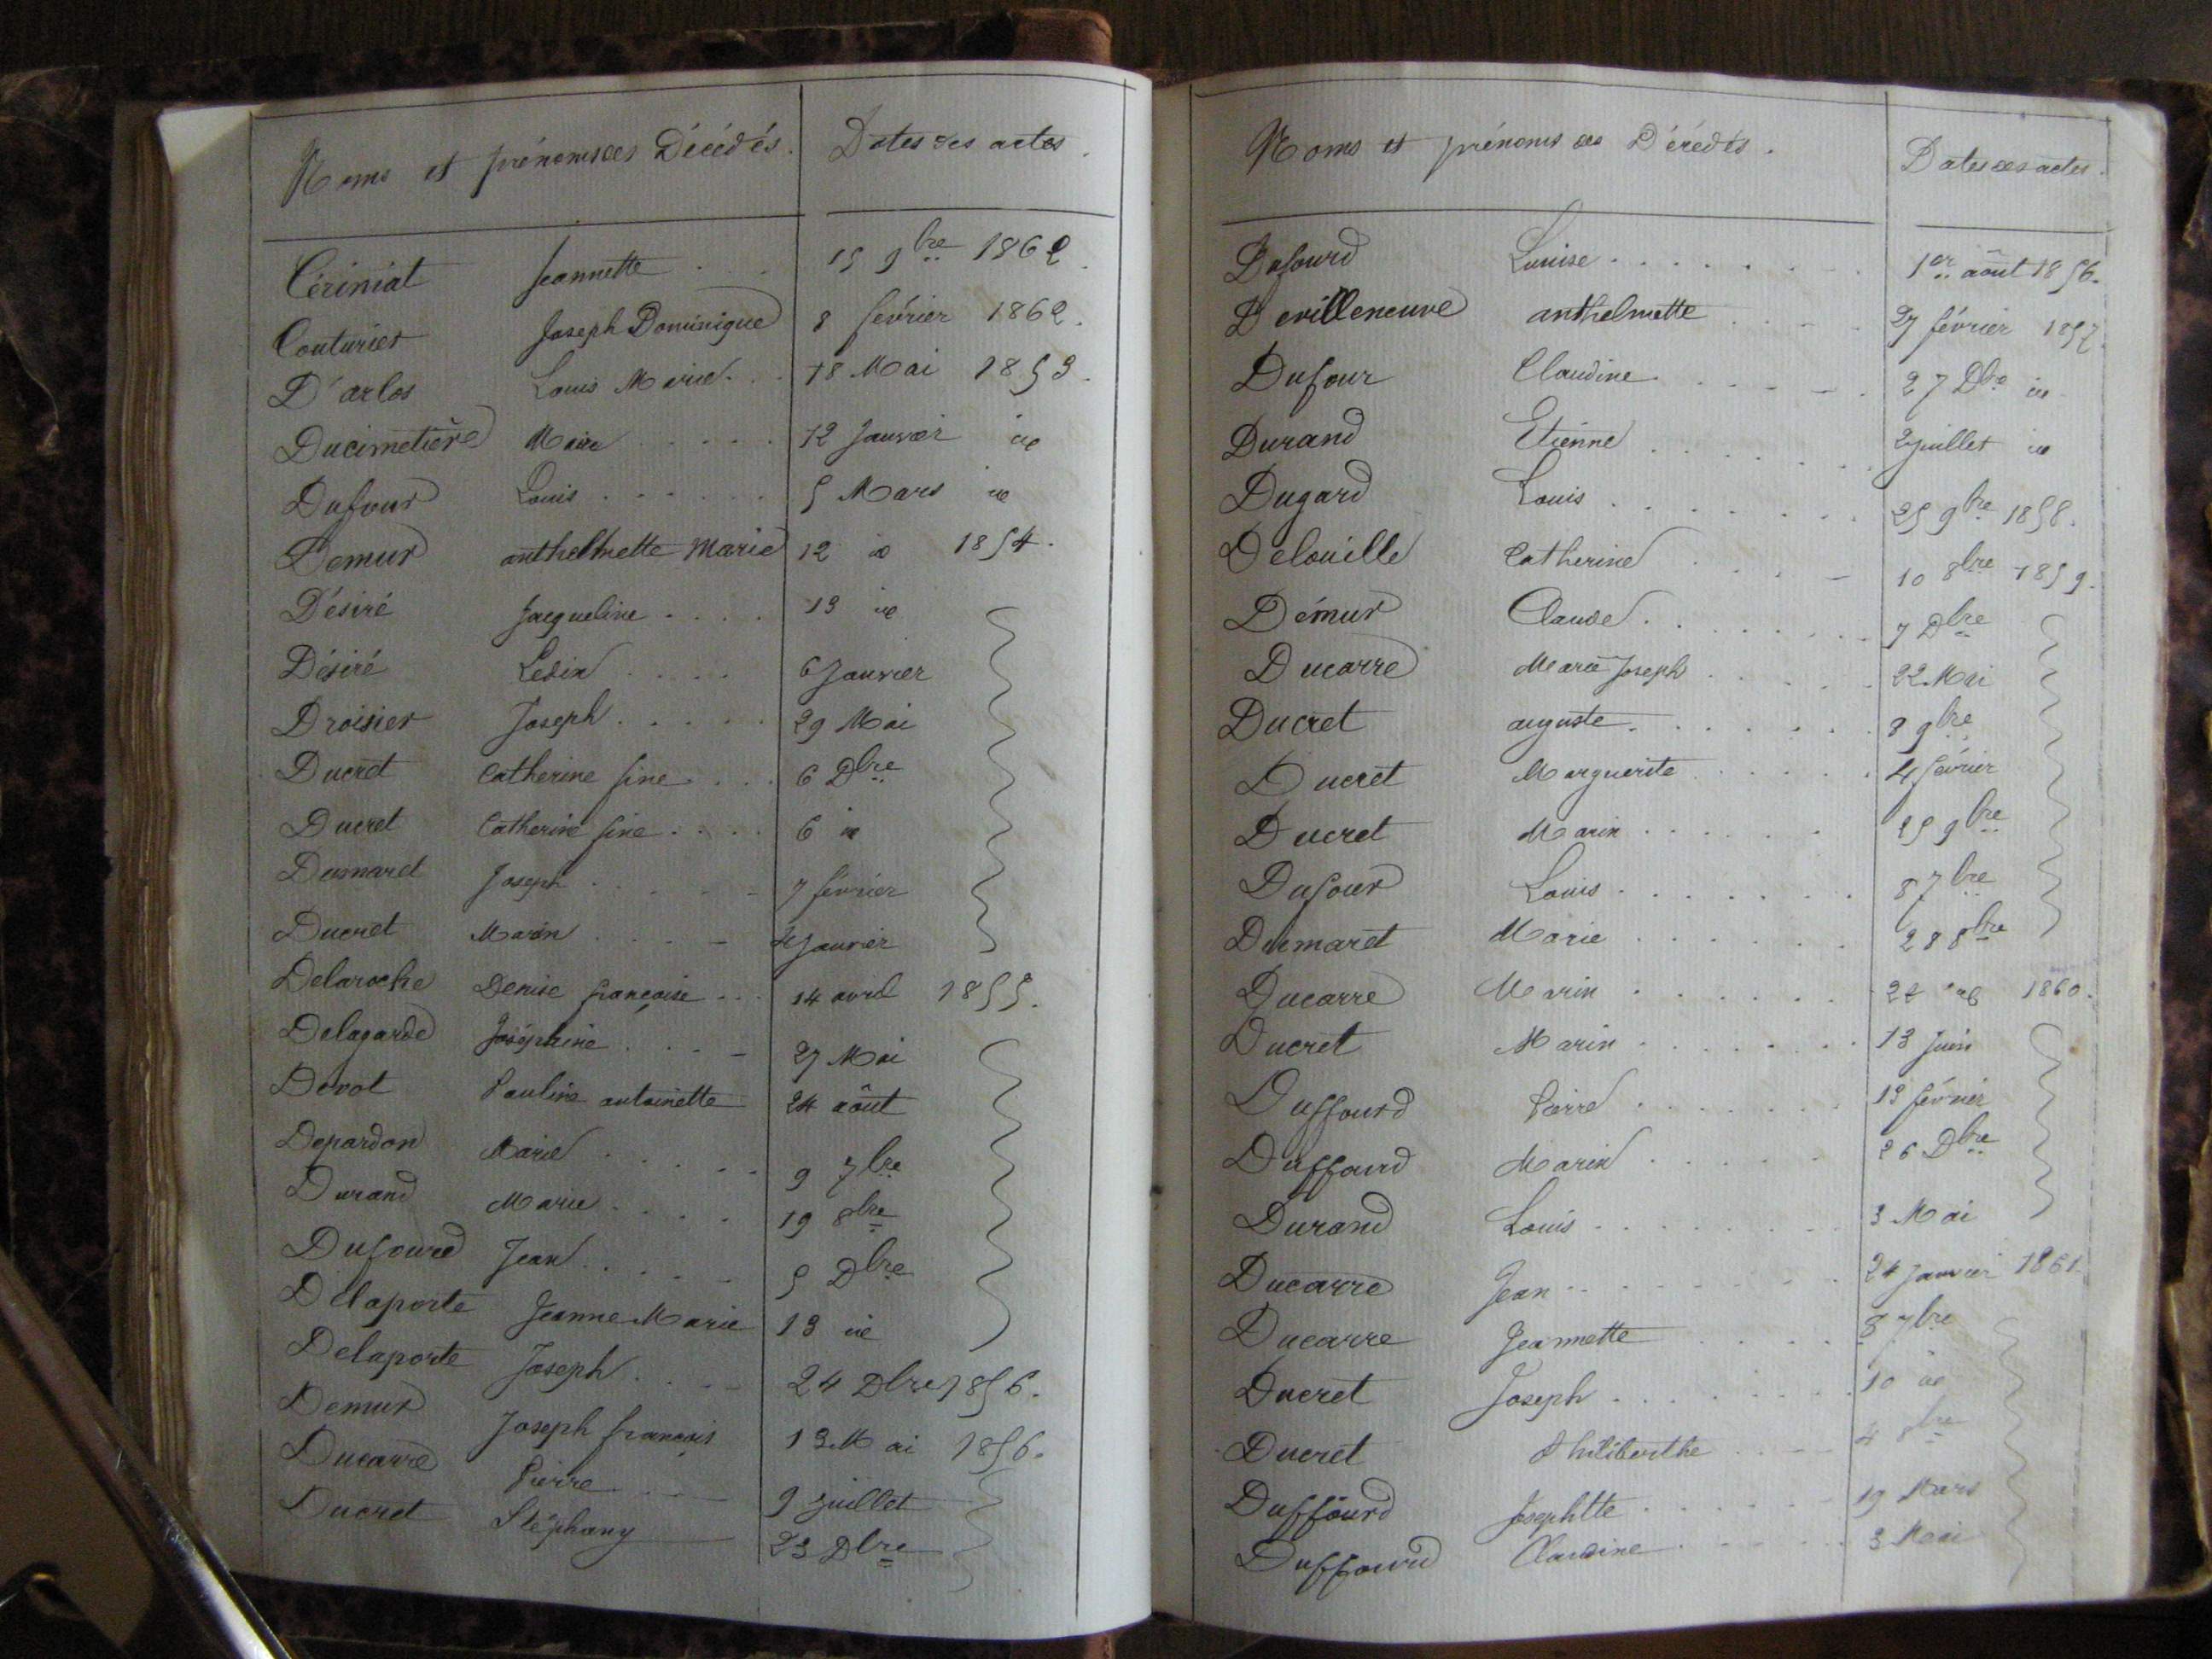 Noms et prénoms des Décédés. Dates des actes.
Cériniat Jeannette . . . 15 9bre 1862.
Couturier Joseph Dominique 8 février 1862.
D'arlos Louis Marie . . 18 Mai 1853.
Ducimetière Marie . . . . . 12 Janvier id
Dufour Louis . . . . . . 5 Mars id
Demur anthelmette Marie 12 id 1854.
Désiré Jacqueline . . . . 13 id
Désiré . . . . 6 Janvier
Droisier Joseph . . . . . 29 Mai
Ducret Catherine fine . . . 6 Dbre
Ducret Catherine fine . . . . 6 id
Dumaret Joseph . . . . . 7 février
Ducret Marin . . . . Janvier
Delaroche Denise françoise . . . 14 avril 1855.
Delagarde Joséphine . . . . 27 Mai
Devot Pauline antoinette 24 août
Depardon Marie . . . . . 9 7bre
Durand Marie . . . . 19 8bre
Dufourd Jean . . . . . 5 Dbre
Delaporte Jeanne Marie 13 id
Delaporte Joseph . . . . 24 Dbre 1856.
Demur Joseph françois 13 Mai 1856.
Ducarre Pierre 9 juillet
Ducret Stéphany 23 Dbre
Noms et prénoms des Décédés. Dates des actes.
Dufourd Louise . . . . . . . . 1er août 1856.
Devilleneuve anthelmette . . . . 27 février 1857.
Dufour Claudine . . . . . 27 Dbre id
Durand Etienne . . . . . . . 2 juillet id
Dugard Louis . . . . . . . 25 9bre 1858.
Delouille Catherine . . . . 10 8bre 1859.
Démur Claude . . . . . . . . 7 Dbre
Ducarre Marie Joseph . . . . . 22 Mai
Ducret auguste . . . . . . . 8 9bre
Ducret Marguerite . . . . . . 4 février
Ducret Marin . . . . . . 25 9bre
Dufour Louis . . . . . . . 8 7bre
Dumaret Marie . . . . . . 28 8bre
Ducarre Marin . . . . . . . 1860.
Ducret Marin . . . . . . . 13 Juin
Duffourd Pierre . . . . . . . 13 février
Duffourd Marin . . . . . 26 Dbre
Durand Louis . . . . . . . . 3 Mai
Ducarre Jean . . . . . . . . 24 Janvier 1861.
Ducarre Jeannette . . . . . 8 7bre
Ducret Joseph . . . . . . . 10 id
Ducret Philiberthe . . . 4 8bre
Duffourd Josephtte . . . . . . 19 Mars
Duffourd Claudine . . . . . 3 Mai